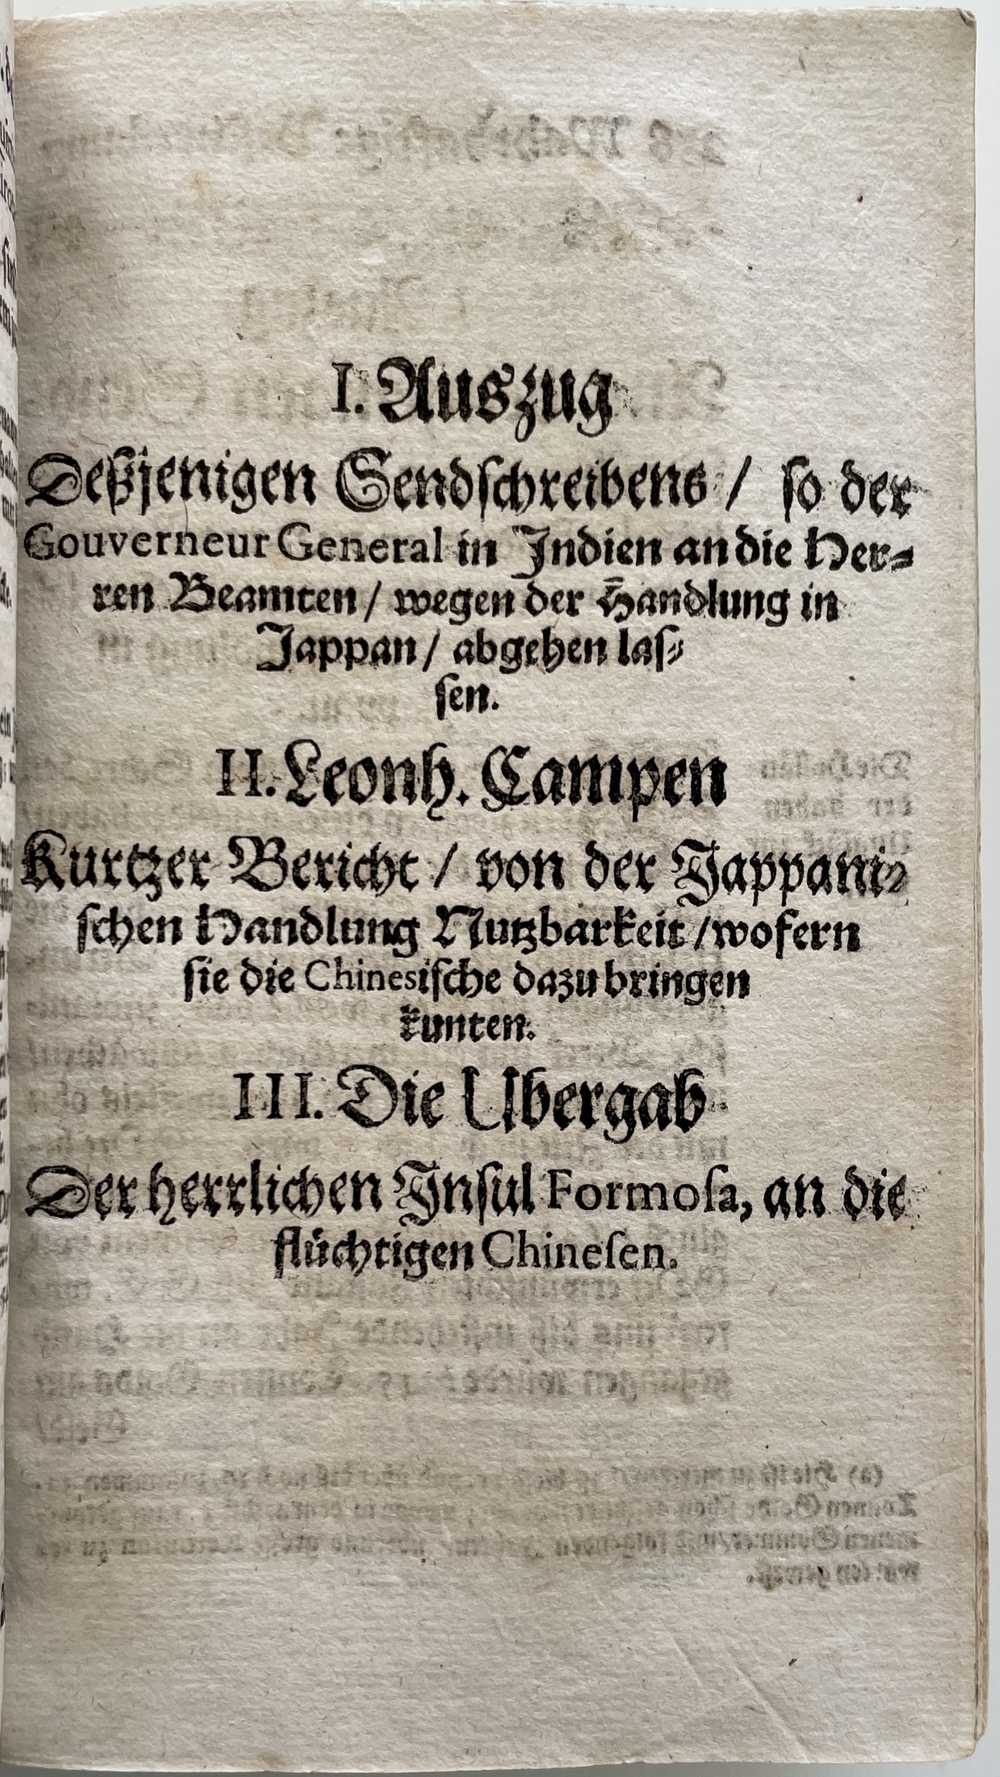 I. Auszug
Deßjenigen Sendschreibens / so der
Gouverneur General in Indien an die Her-
ren Beamten / wegen der Handlung in
Jappan / abgehen las-
sen.
II. Leonh. Campen
Kurtzer Bericht / von der Jappani-
schen Handlung Nutzbarkeit / wofern
sie die Chinesische dazu bringen
kunten.
III. Die Ubergab
Der herrlichen Insul Formosa, an die
flüchtigen Chinesen.